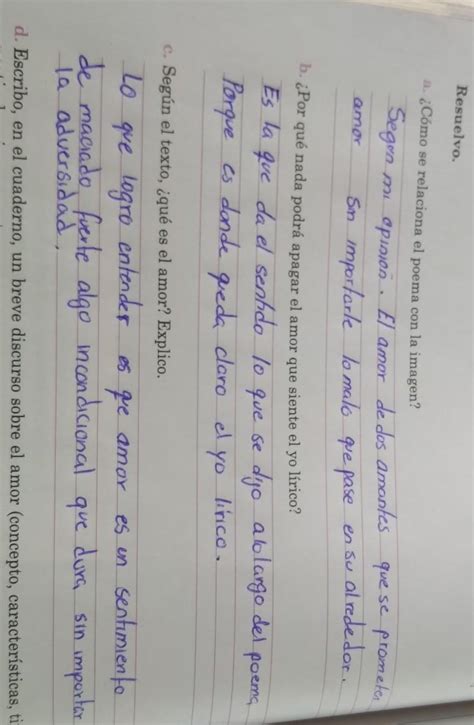 Resuelvo.
a. ¿Cómo se relaciona el poema con la imagen?
Segun mi opinión. El amor de dos amantes que se prometen
amor sin importarle lo malo que pase en su alrededor.
b. ¿Por qué nada podrá apagar el amor que siente el yo lírico?
Es la que da el sentido lo que se dijo alo largo del poema
Porque es donde queda claro el yo lírico.
c. Según el texto, ¿qué es el amor? Explico.
Lo que logro entender es que amor es un sentimiento
de maciado fuerte algo incondicional que dura sin importar
la adversidad.
d. Escribo, en el cuaderno, un breve discurso sobre el amor (concepto, características, ti